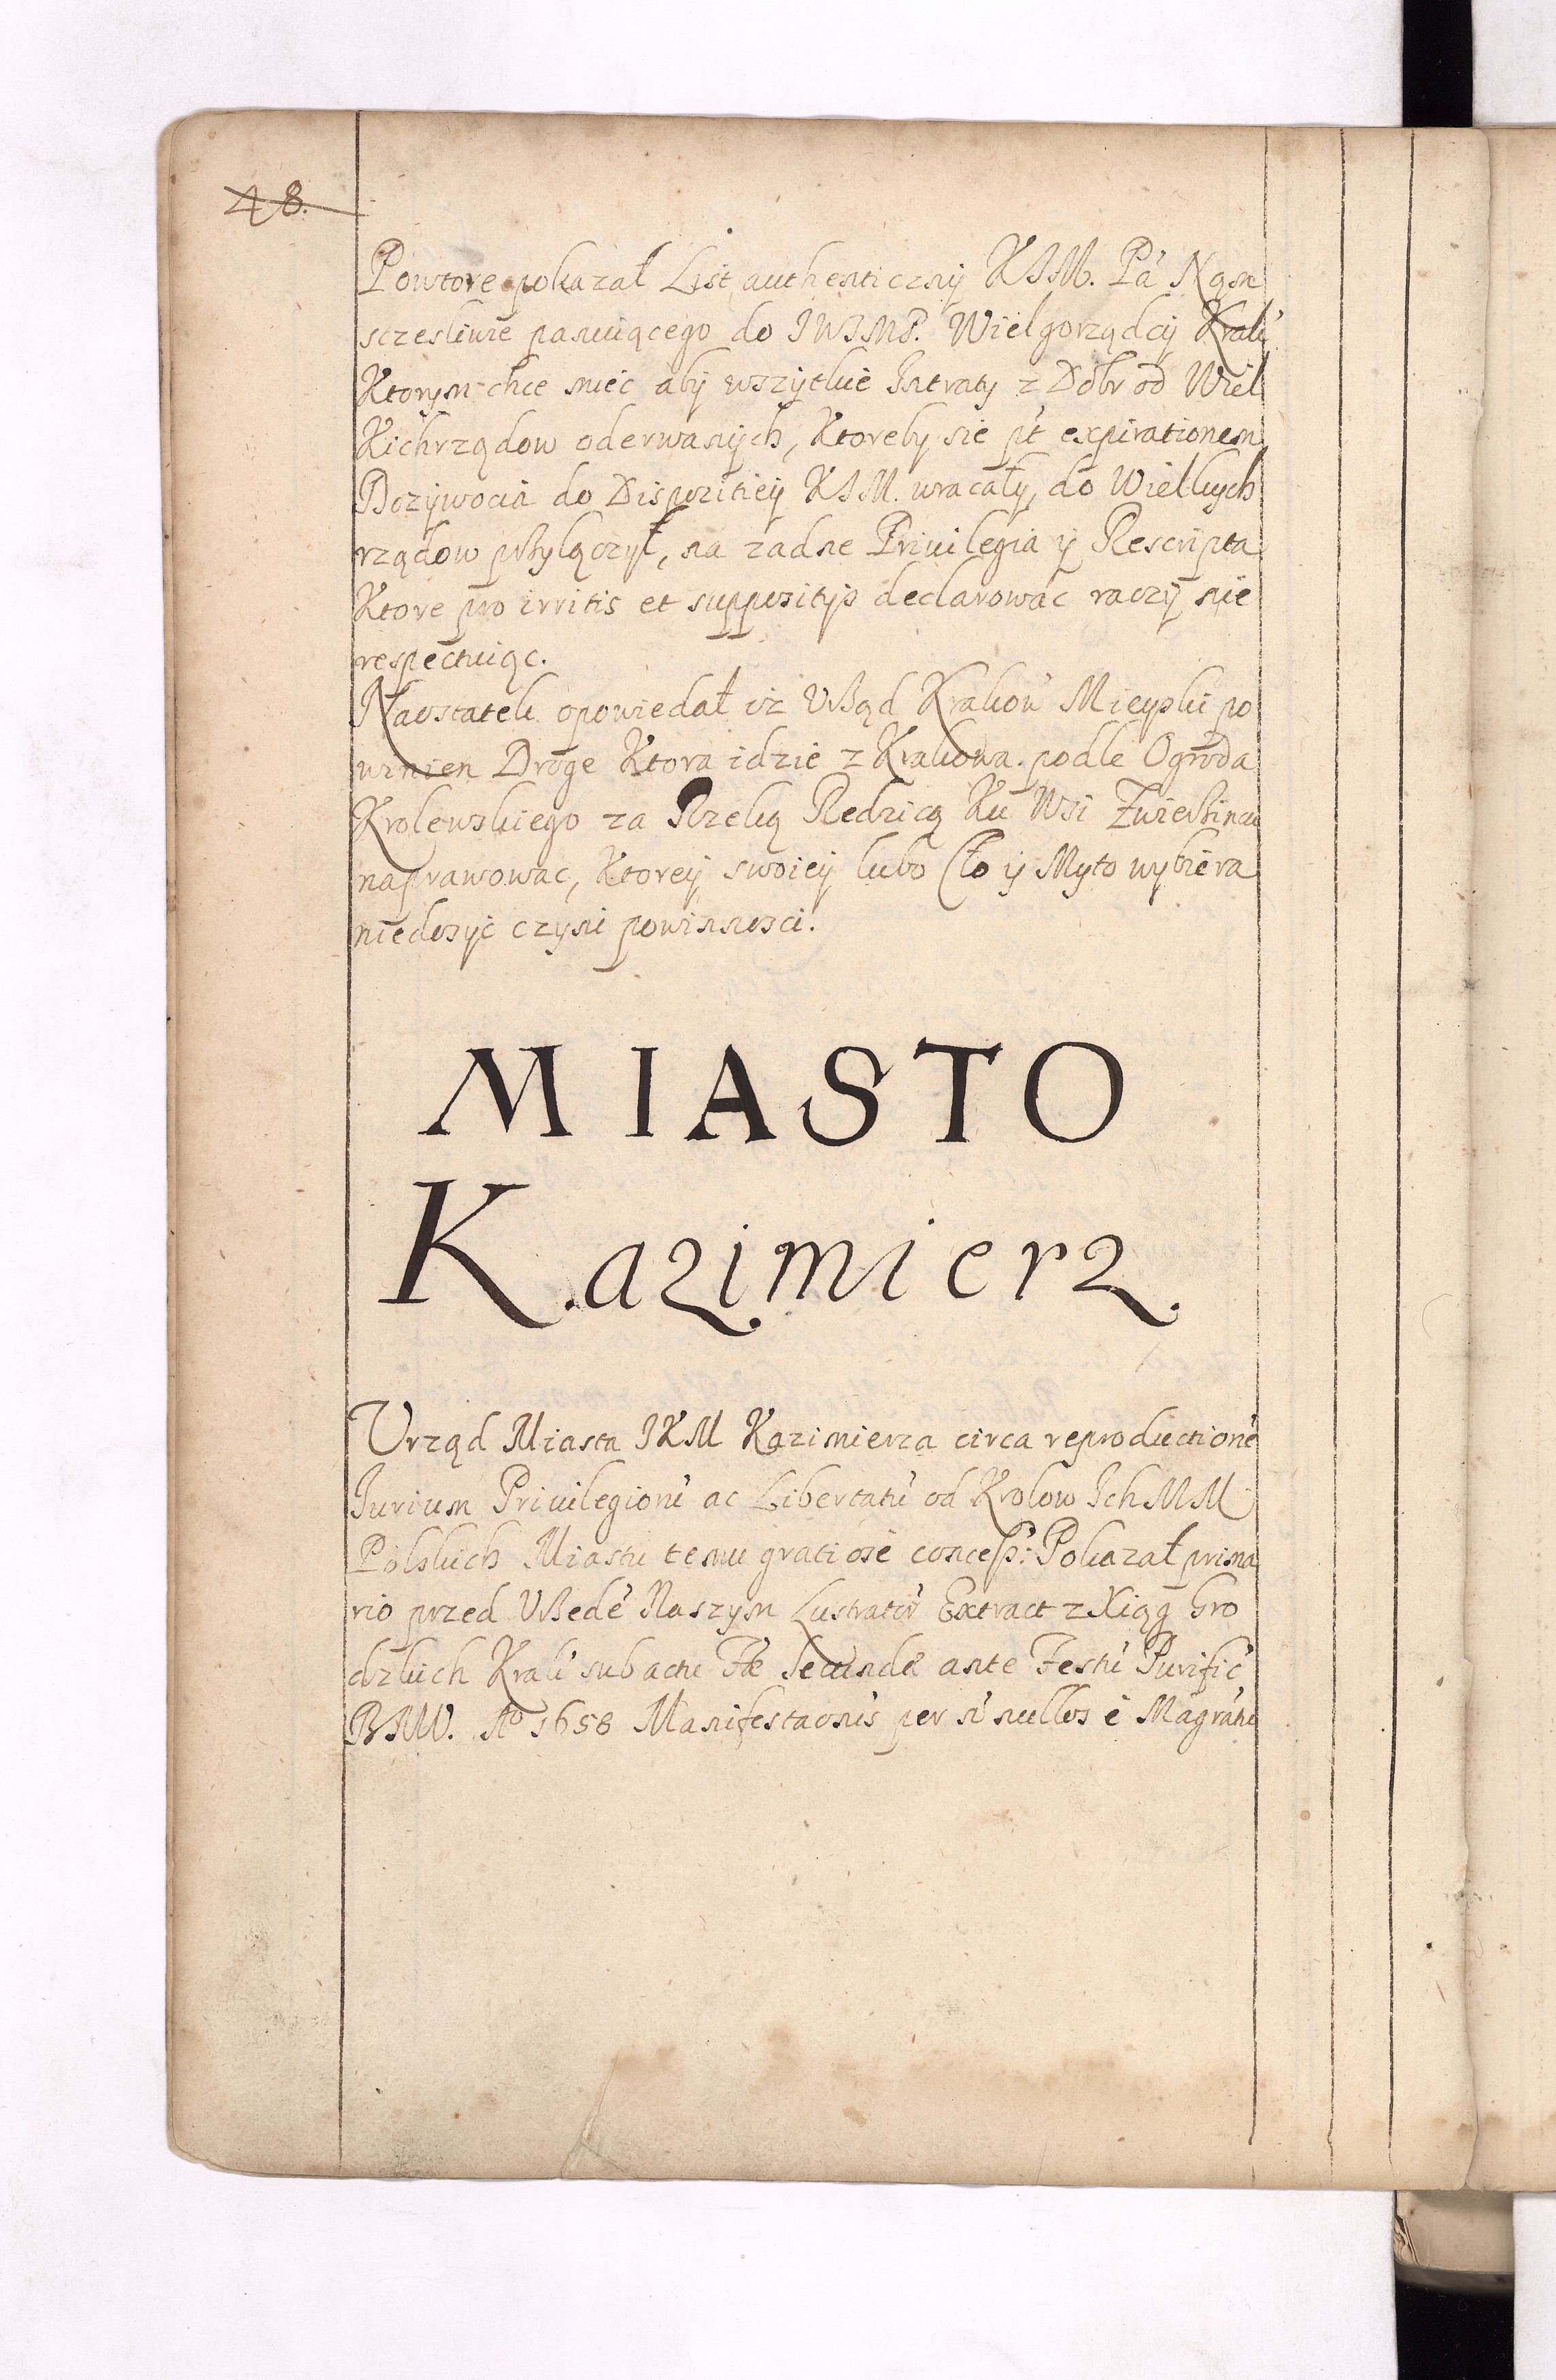 48.
Powtore pokazał List authenticzny KJM. Pa Ngm
sczesliwie panuiącego do JWJMP. Wielgorządcy Krak
Ktorym chce miec aby wszytkie Intraty z Dobr od Wiel
Kichrządow oderwanych, Ktoreby sie pt expirationem
Dozywocia do Dispozitiey KJM. wracały, do Wielkych
rządow przyłączył, na zadne Privilegia y Rescripta
Ktore pro irritis et suppositys declarowac raczy nie
respectuiąc.
Naostatek opowiedał iz Vrząd Krakow Mieyski po
winien Droge Ktora idzie z Krakowa podle Ogroda
Krolewskiego za Rzeką Redzicą Ku Wsi Zwierzincu
naprawowac, Ktorey swoiey lubo Cło y Myto wybiera
niedosyc czyni powinnosci.
MIASTO
Kazimierz.
Vrząd Miasta JKM Kazimierza circa reproductione
Jurium Privilegioru ac Libertatu od Krolow Ich MM
Polskich Miastu temu gratiose concess: Pokazał prima
rio przed Vrzede Naszym Lustrator Extract z Xiąg Gro
dzkich Krak sub actu Fæ Secunda ante Festu Purific
BMV. Ao 1658 Manifestaonis per n nullos e Magratu